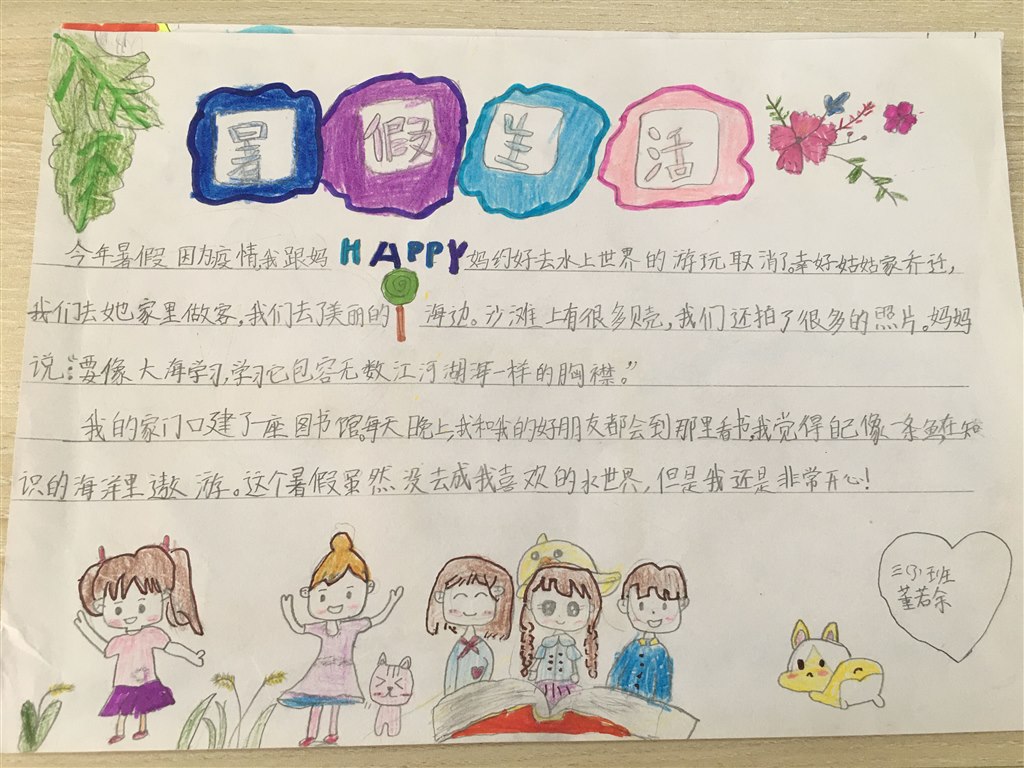 暑假生活
今年暑假因为疫情,我跟妈HAPPY妈约好去水上世界的游玩取消了。幸好姑姑家乔迁,
我们去她家里做客,我们去了美丽的海边。沙滩上有很多贝壳,我们还拍了很多的照片。妈妈
说:“要像大海学习,学习它包容无数江河湖海一样的胸襟。”
我的家门口建了一座图书馆。每天晚上,我和我的好朋友都会到那里看书,我觉得自己像一条鱼在知
识的海洋里遨游。这个暑假虽然没去成我喜欢的水世界,但是我还是非常开心!
班
董若余